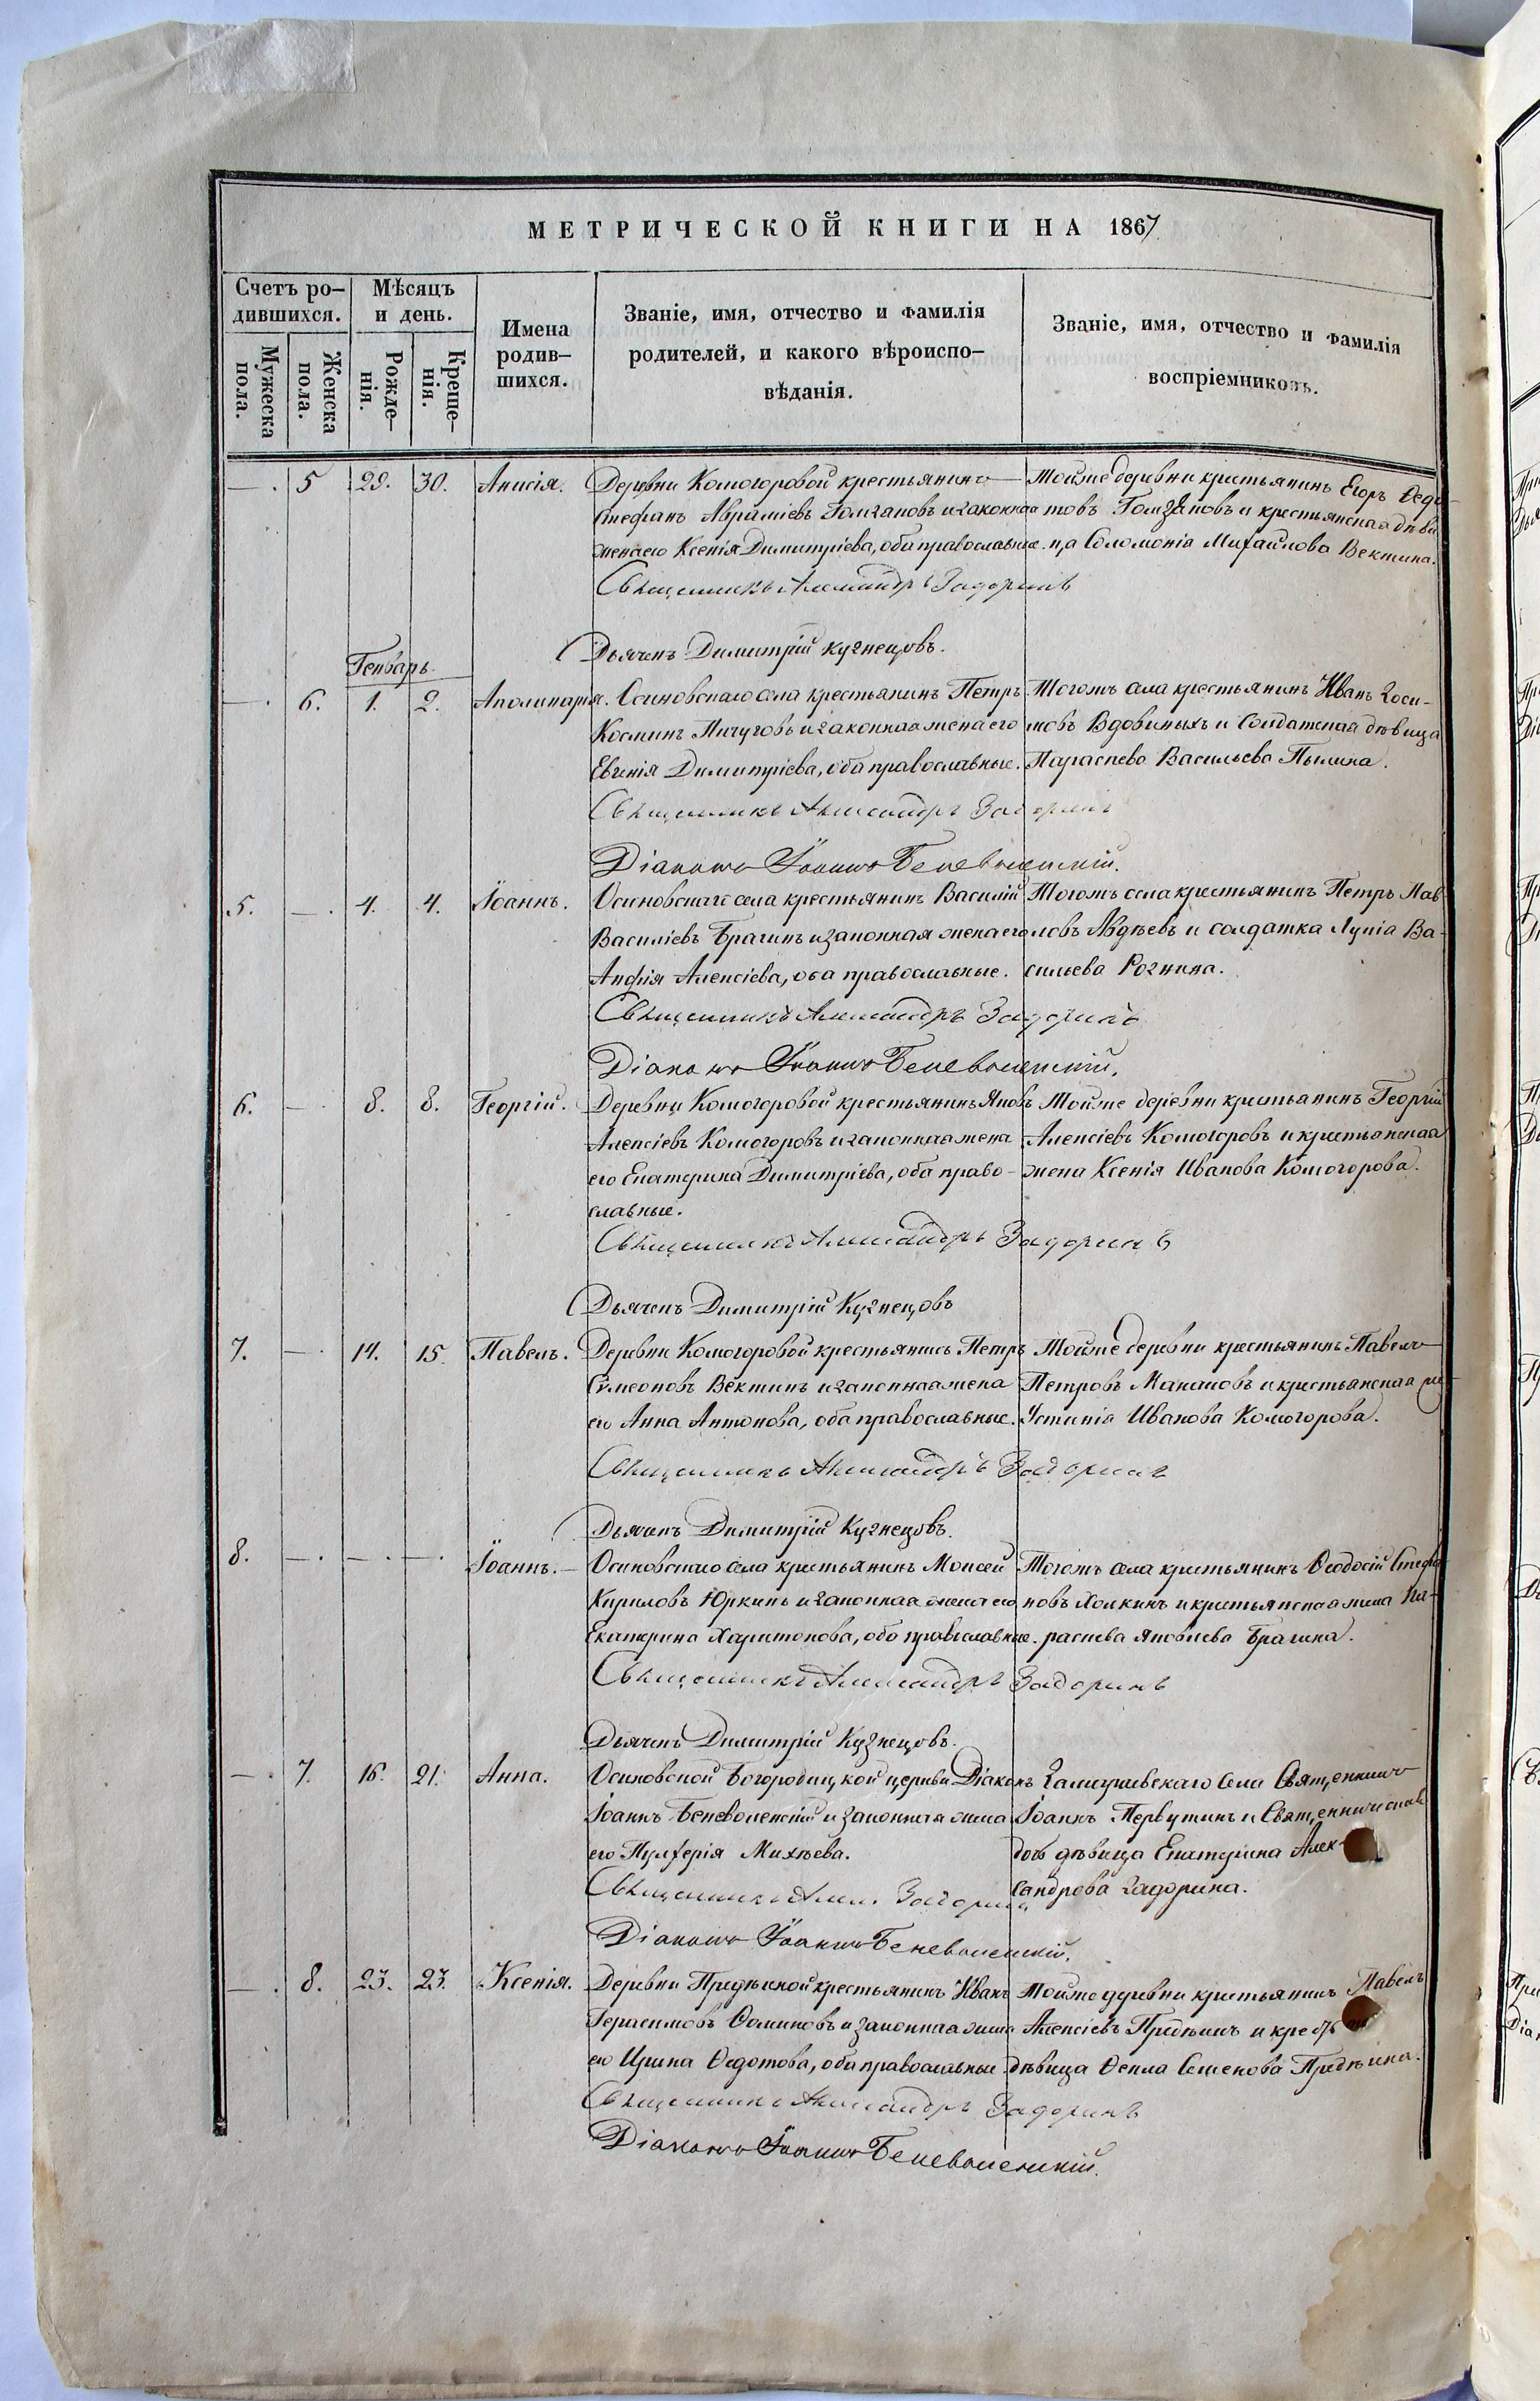 МЕТРИЧЕСКОЙ КНИГИ НА 1867
Счетъ ро-
дившихся.
Мужеска
пола.
Женска
пола.
Мѣсяцъ
и день.
Рожде-
нія.
Креще-
нія.
Имена
родив-
шихся.
Званіе, имя, отчество и фамилія
родителей, и какого вѣроиспо-
вѣданія.
Званіе, имя, отчество и фамилія
воспріемниковъ.
— . 5 29. 30. Анисія.
Деревни Комогоровой крестьянинъ
Стефанъ Авраміевъ Гомзаповъ и законная
жена его Ксенія Димитріева, оба православные.
Тойже деревни крестьянинъ Егоръ Ѳедо-
товъ Гомзяповъ и крестьянская дѣви-
ца Соломонія Михайлова Вектина.
Священникъ Александръ Задоринъ
Дьячекъ Димитрій Кузнецовъ.
Генварь.
— . 6. 1. 2. Аполинарія.
Осиновскаго села крестьянинъ Петръ
Косминъ Пичуговъ и законная жена его
Евгенія Димитріева, оба православные.
Тогожъ села крестьянинъ Иванъ Зоси-
мовъ Вдовиныхъ и солдатская дѣвица
Параскева Васильева Пылина.
Священникъ Александръ Задоринъ
Діаконъ Іоаннъ Беневоленскій.
5. — . 4. 4. Іоаннъ.
Осиновскаго села крестьянинъ Василій
Василіевъ Брагинъ и законная жена его
Анфія Алексіева, оба православные.
Тогожъ села крестьянинъ Петръ Пав-
ловъ Авдѣевъ и солдатка Лукія Ва-
сильева Рогкина.
Священникъ Александръ Задоринъ
Діаконъ Іоаннъ Беневоленскій.
6. — . 8. 8. Георгій.
Деревни Комогоровой крестьянинъ Яковъ
Алексіевъ Комогоровъ и законная жена
его Екатерина Димитріева, оба право-
славные.
Тойже деревни крестьянинъ Георгій
Алексіевъ Комогоровъ и крестьянская
жена Ксенія Иванова Комогорова.
Священникъ Александръ Задоринъ
Дьячекъ Димитрій Кузнецовъ
7. — . 14. 15. Павелъ.
Деревни Комогоровой крестьянинъ Петръ
Сѵмеоновъ Вектинъ и законная жена
его Анна Антонова, оба православные.
Тойже деревни крестьянинъ Павелъ
Петровъ Макаловъ и крестьянская
Устинія Иванова Комогорова.
Священникъ Александръ Задоринъ
Дьячекъ Димитрій Кузнецовъ.
8. — . — . — . Іоаннъ. —
Осиновскаго села крестьянинъ Моисей
Кириловъ Юркинъ и законная жена его
Екатерина Харитонова, оба православные.
Тогожъ села крестьянинъ Ѳеодосій Стефа-
новъ Холкинъ и крестьянская жена Па-
раскева Яковлева Брагина.
Священникъ Александръ Задоринъ
Дьячекъ Димитрій Кузнецовъ.
— . 7. 16. 21. Анна.
Осиновской Богородицкой церкви Діаконъ
Іоаннъ Беневоленскій и законная жена
его Пулхерія Михѣева.
села Священникъ
Іоаннъ Первушинъ и Священническая
дочь дѣвица Екатерина Алек-
сандрова Задорина.
Священникъ Алек. Задоринъ
Діаконъ Іоаннъ Беневоленскій.
— . 8. 23. 23. Ксенія.
Деревни Предѣиной крестьянинъ Иванъ
Герасимовъ Ѳоминовъ и законная жена
его Ирина Ѳедотова, оба православные.
Тойже деревни крестьянинъ Павелъ
Алексіевъ Предѣинъ и крест
дѣвица Ѳекла Семенова Предѣина.
Священникъ Александръ Задоринъ
Діаконъ Іоаннъ Беневоленскій.